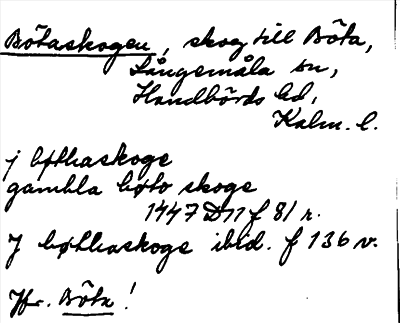 Bötaskogen, skog till Böta,
Långemåla sn,
Handbörds hd,
Kalm. l.
j bøthaskoge
gambla bøto skoge
1447 D11 f 81 r.
J bøthaskoge ibid. f 136 v.
Jfr. Böta!